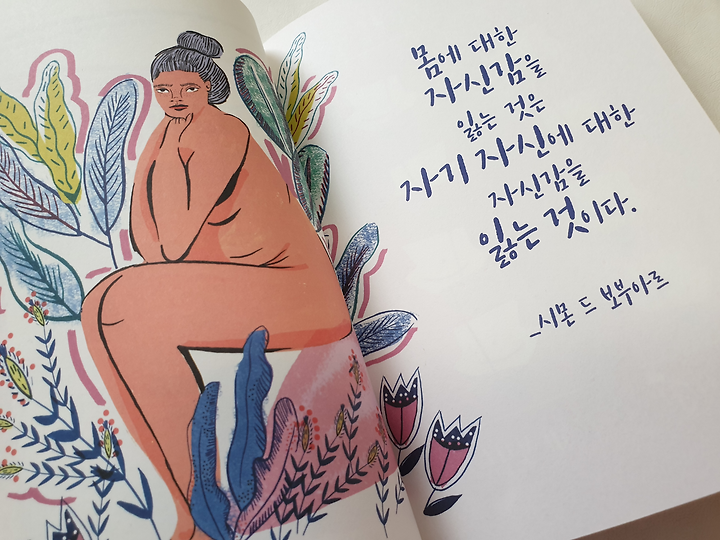 몸에 대한
자신감을
잃는 것은
자기 자신에 대한
자신감을
잃는 것이다.
_시몬 드 보부아르